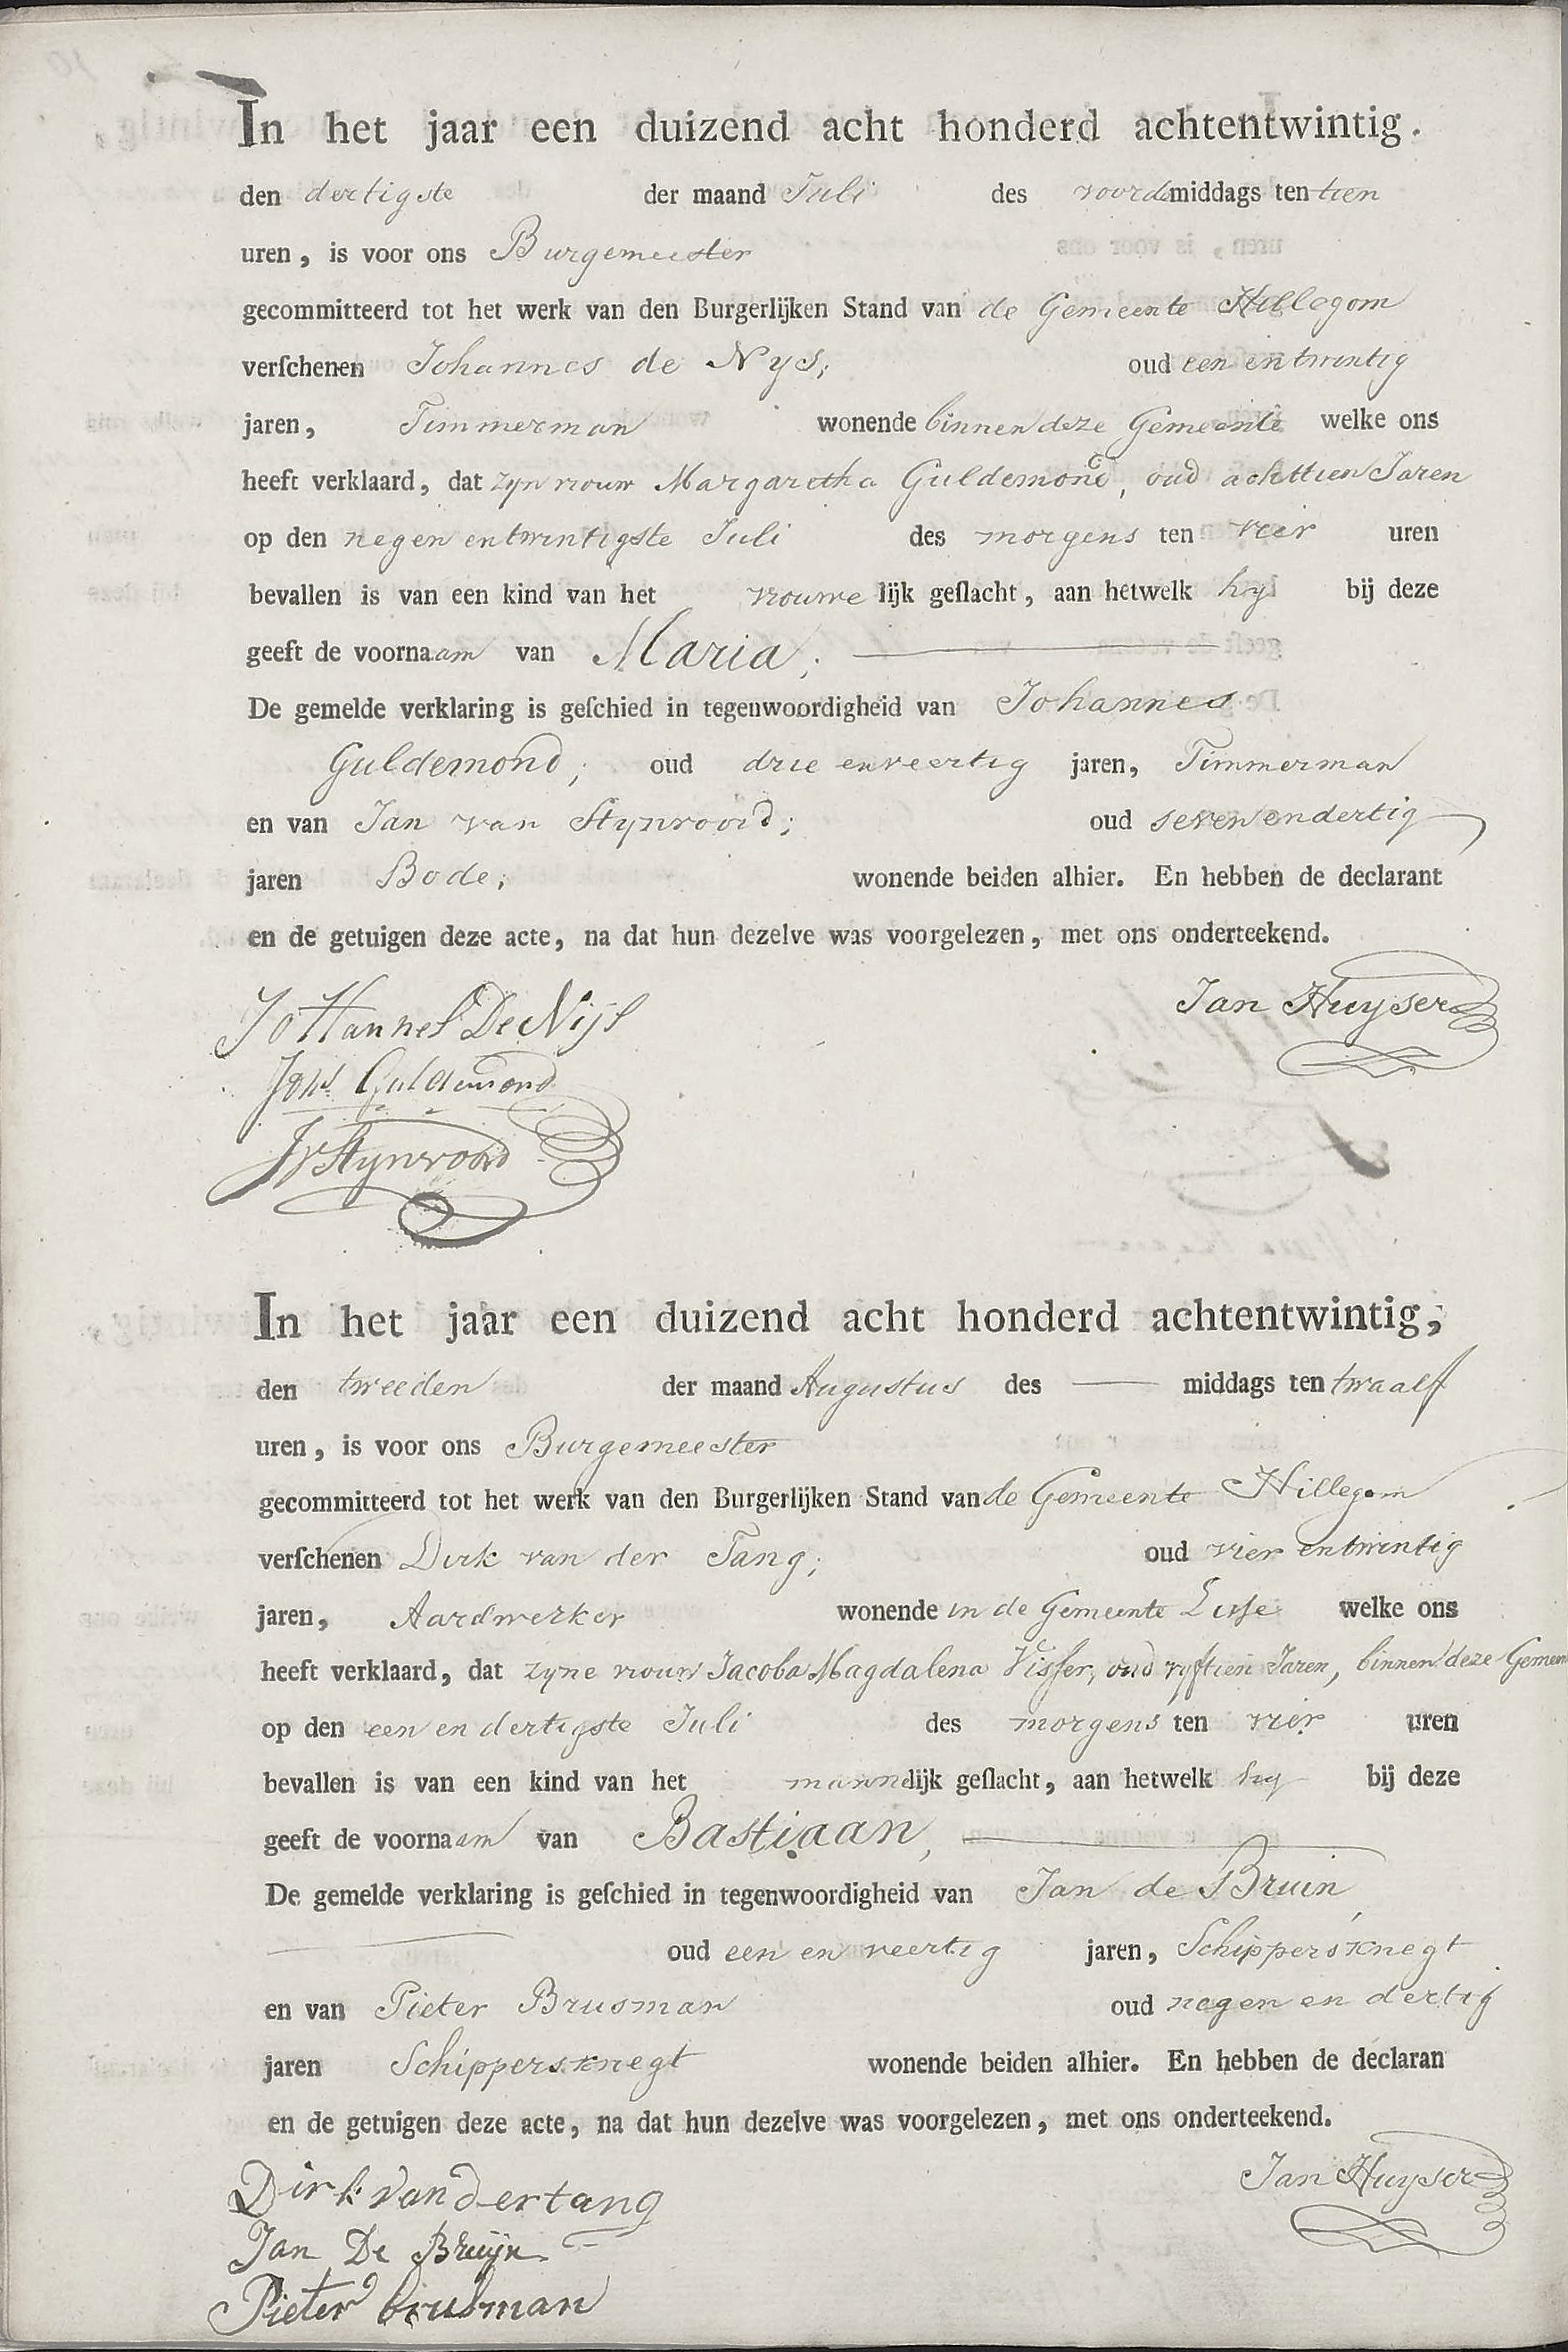 In het jaar een duizend acht honderd achtentwintig.
den dertigste der maand Juli des voordemiddags ten tien
uren, is voor ons Burgemeester
gecommitteerd tot het werk van den Burgerlijken Stand van de Gemeente Hillegom
verſchenen Johannes de Nys; oud een en twintig
jaren, Timmerman wonende binnen deze Gemeente welke ons
heeft verklaard, dat zyn vrouw Margaretha Guldemond, oud achttien Jaren
op den negen en twintigste Juli des morgens ten vier uren
bevallen is van een kind van het vrouwelijk geſlacht, aan hetwelk hy bij deze
geeft de voornaam van Maria;
De gemelde verklaring is geſchied in tegenwoordigheid van Johannes
Guldemond; oud drie en veertig jaren, Timmerman
en van Jan van Stynvoord; oud seven en dertig
jaren Bode; wonende beiden alhier. En hebben de declarant
en de getuigen deze acte, na dat hun dezelve was voorgelezen, met ons onderteekend.
JoHannes De Nijs Jan Huyser
Johs Guldemond
JVStynvoord
In het jaar een duizend acht honderd achtentwintig;
den tweeden der maand Augustus des middags ten twaalf
uren, is voor ons Burgemeester
gecommitteerd tot het werk van den Burgerlijken Stand van de Gemeente Hillegom
verſchenen Dirk van der Tang; oud vier en twintig
jaren, Aardwerker wonende in de Gemeente Lisse welke ons
heeft verklaard, dat zyne vrouw Jacoba Magdalena Visser, oud vyftien Jaren, binnen deze Gemeen
op den een en dertigste Juli des morgens ten vier uren
bevallen is van een kind van het mannelijk geſlacht, aan hetwelk hy bij deze
geeft de voornaam van Bastiaan,
De gemelde verklaring is geſchied in tegenwoordigheid van Jan de Bruin,
oud een en veertig jaren, Schippersknegt
en van Pieter Brusman oud negen en dertig
jaren Schippersknegt wonende beiden alhier. En hebben de declaran
en de getuigen deze acte, na dat hun dezelve was voorgelezen, met ons onderteekend.
Dirk van der tang Jan Huyser
Jan De Bruijn
Pieter brusman